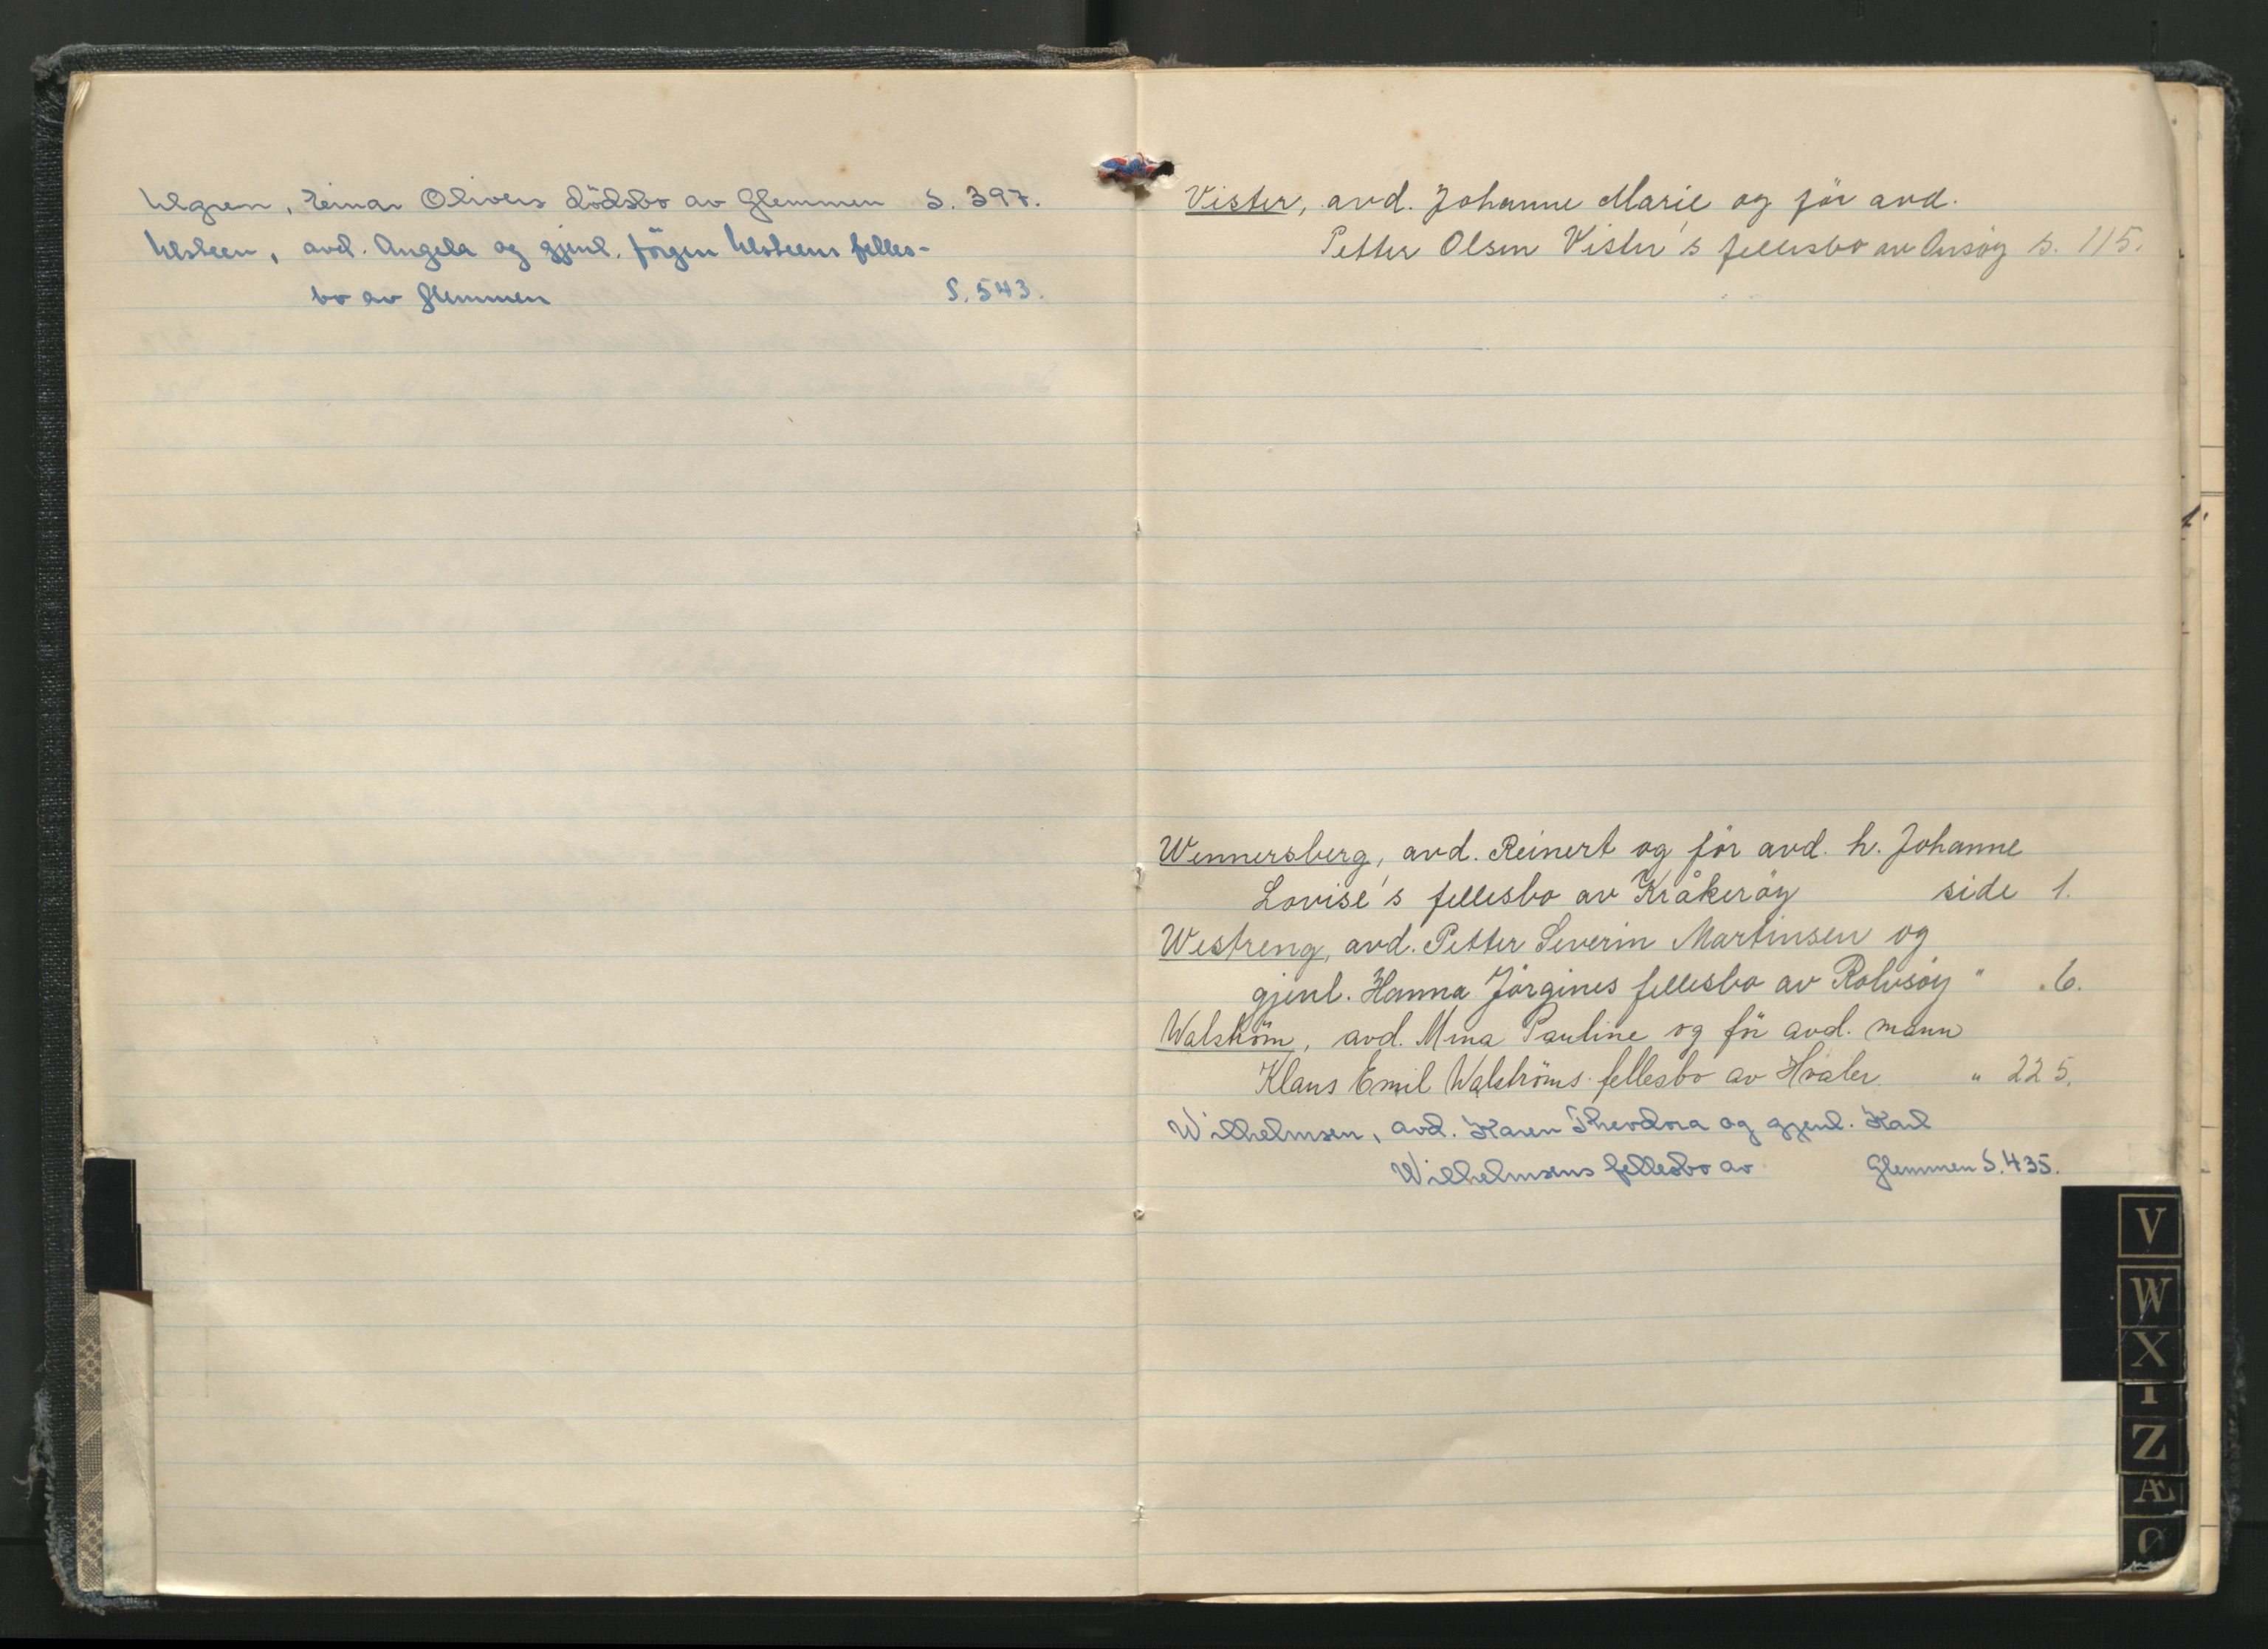 Ulgren, Einar Olivers dödsbo av Glemmen S. 397.
Ulsteen, avd. Angela og gjenl. Jörgen Ulsteens felles-
bo av Glemmen S. 543.
Vister, avd. Johanne Marie og för avd.
Petter Olsen Vister's fellesbo av Onsøy s. 115.
Wennersberg, avd. Reinert og för avd. h. Johanne
Lovise's fellesbo av Kråkeröy side 1.
Westreng, avd. Petter Severin Martinsen og
gjenl. Hanna Jörgines fellesbo av Rolvsöy " 6.
Walström, avd. Mina Pauline og för avd. mann
Klaus Emil Walströms fellesbo av Hvaler " 225.
Wilhelmsen, avd. Karen Theodora og gjenl. Karl
Wilhelmsens fellesbo av Glemmen S. 435.
V
W
X
Y
Z
Æ
Ø